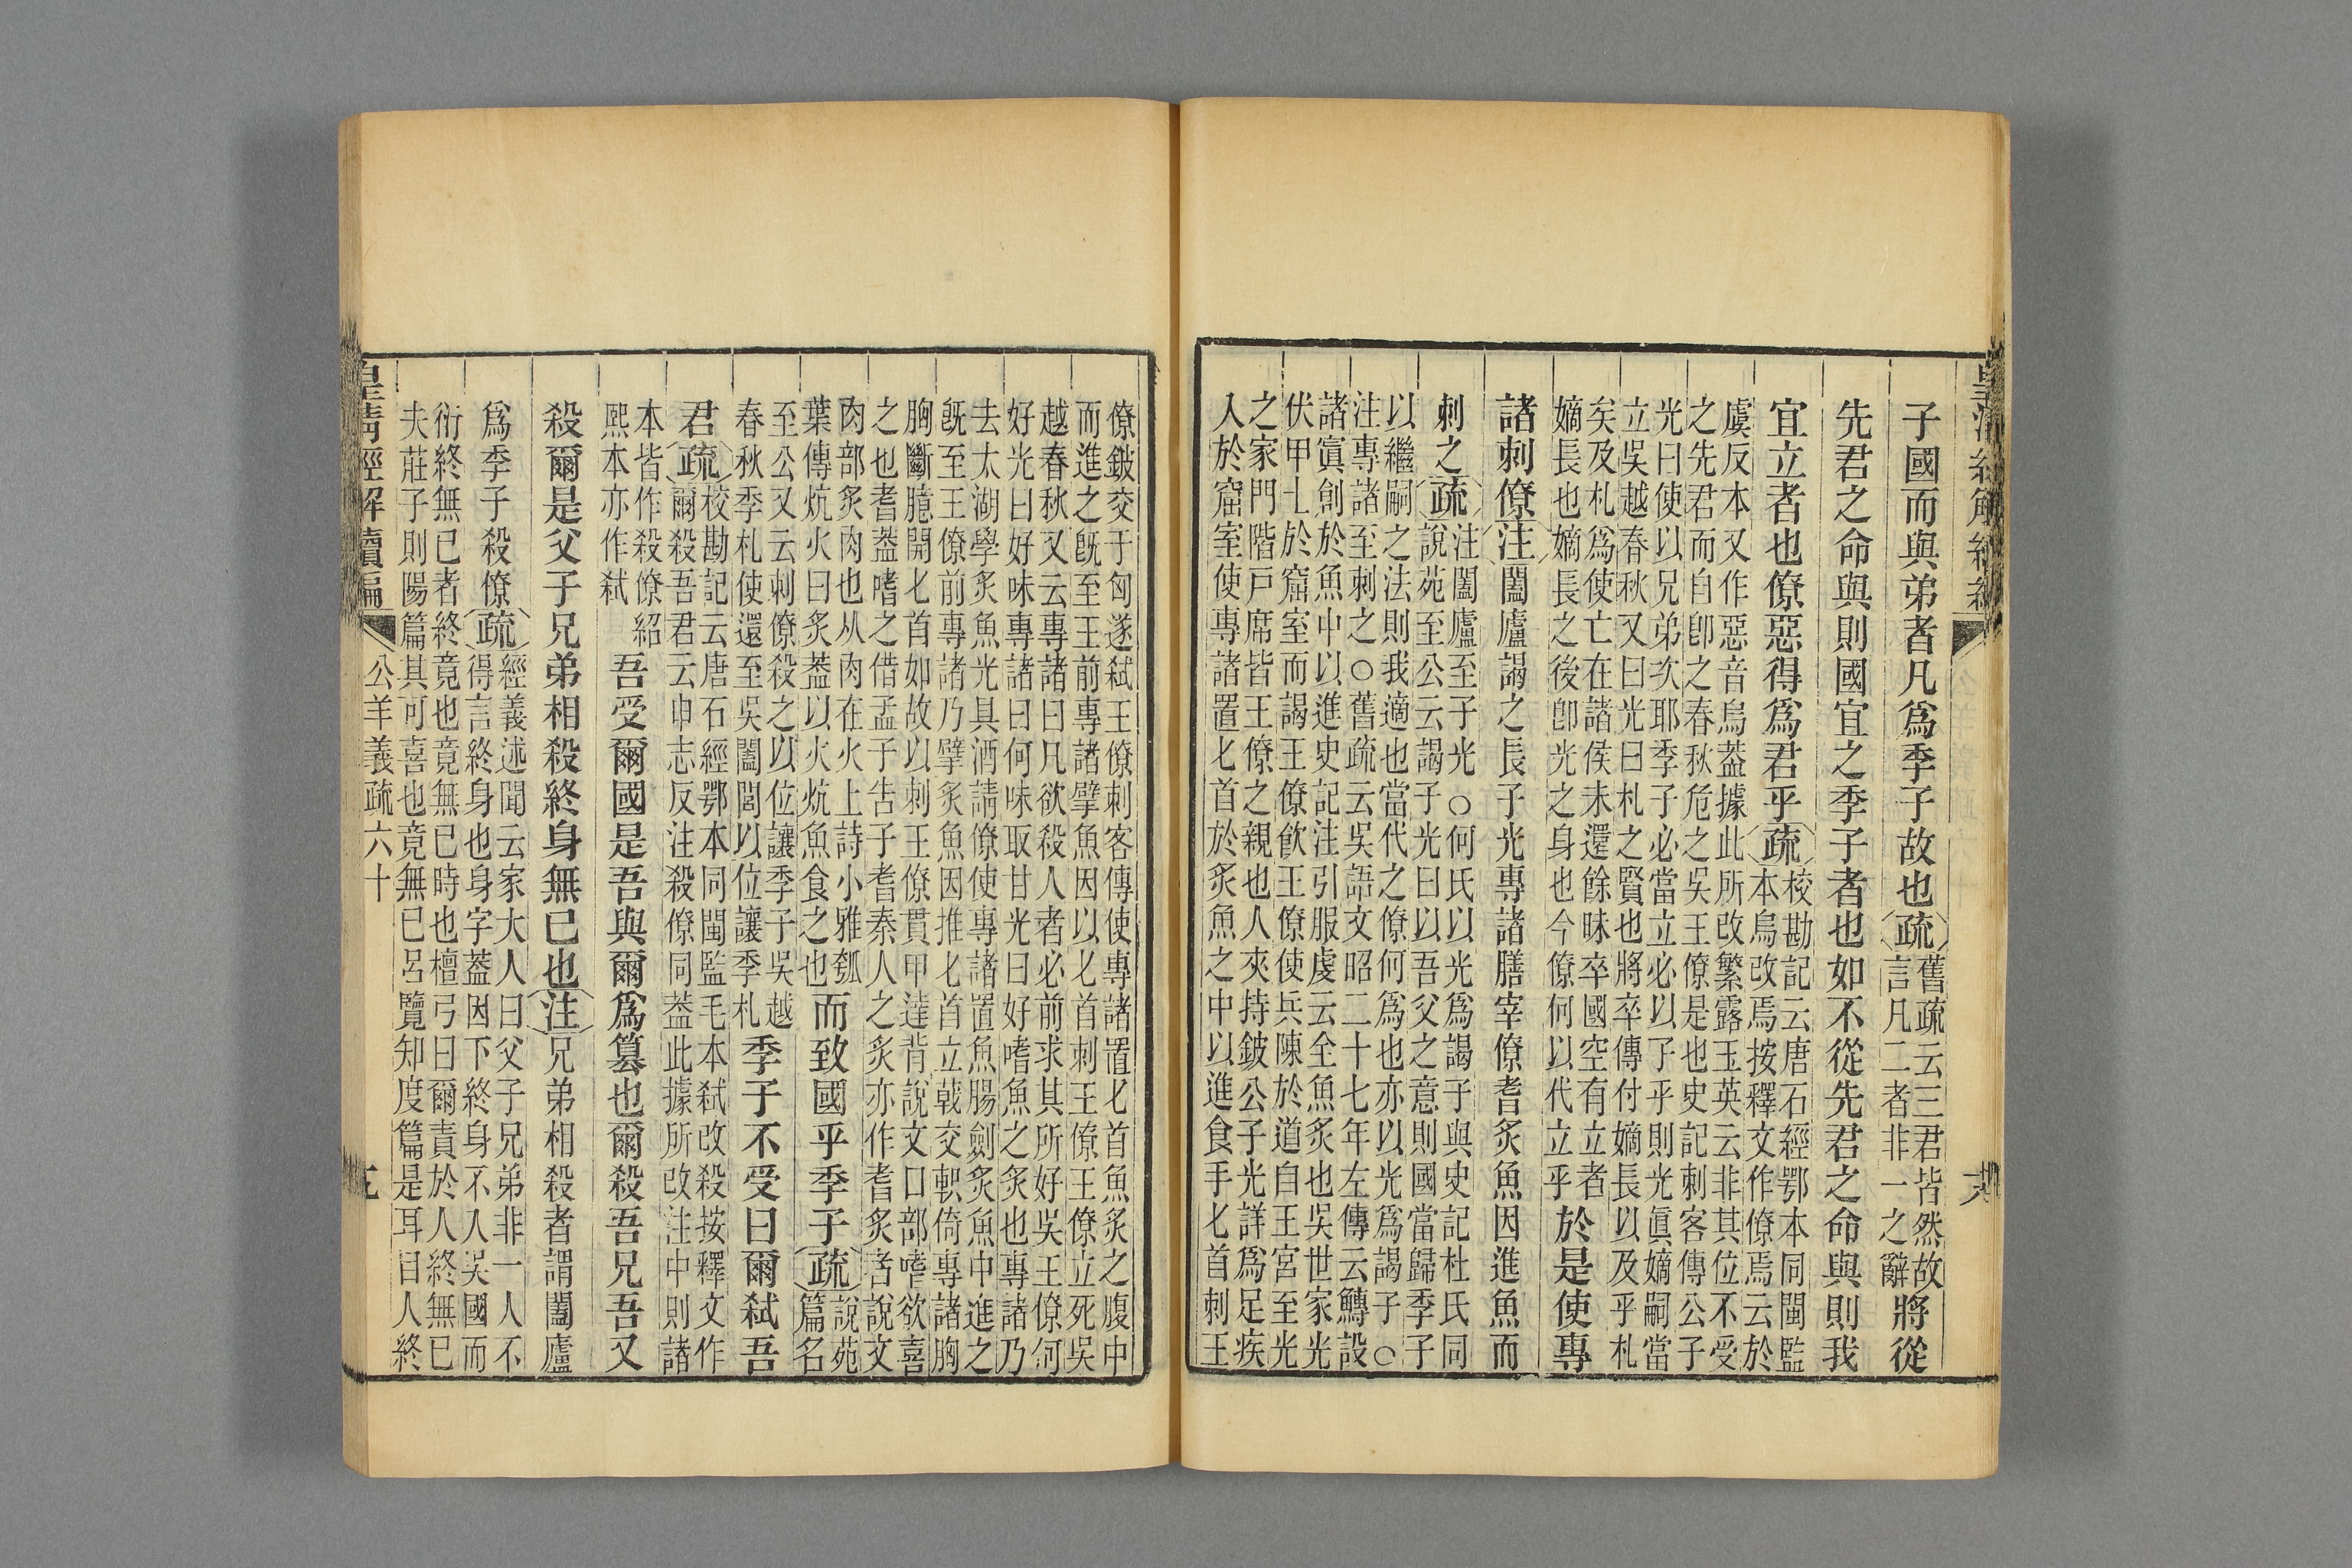 子國而與弟者凡爲季子故也疏舊疏云三君皆然故
言凡二者非一之辭將從
先君之命與則國宜之季子者也如不從先君之命與則我
宜立者也僚惡得爲君乎疏校勘記云唐石經鄂本同閩監
本烏改焉按釋文作僚焉云於
虔反本又作惡音烏葢據此所改繁露玉英云非其位不受
之先君而自卽之春秋危之吳王僚是也史記刺客傳公子
光曰使以兄弟次耶季子必當立必以子乎則光眞嫡嗣當
立吳越春秋又曰光曰札之賢也將卒傳付嫡長以及乎札
矣及札爲使亡在諸侯未還餘昧卒國空有立者
嫡長也嫡長之後卽光之身也今僚何以代立乎於是使專
諸刺僚注闔廬謁之長子光專諸膳宰僚耆炙魚因進魚而
刺之疏注闔廬至子光○何氏以光爲謁子與史記杜氏同
說苑至公云謁子光曰以吾父之意則國當歸季子
以繼嗣之法則我適也當代之僚何爲也亦以光爲謁子○
注專諸至刺之○舊疏云吳語文昭二十七年左傳云鱄設
諸寘創於魚中以進史記注引服虔云全魚炙也吳世家光
伏甲士於窟室而謁王僚飲王僚使兵陳於道自王宮至光
之家門階戶席皆王僚之親也人夾持鈹公子光詳爲足疾
入於窟室使專諸置匕首於炙魚之中以進食手匕首刺王
皇清經解續編
僚鈹交于匈遂弑王僚刺客傳使專諸置匕首魚炙之腹中
而進之旣至王前專諸擘魚因以匕首刺王僚王僚立死吳
越春秋又云專諸曰凡欲殺人者必前求其所好吳王僚何
好光曰好味專諸曰何味取甘光曰好嗜魚之炙也專諸乃
去太湖學炙魚光具酒請僚使專諸置魚腸劍炙魚中進之
旣至王僚前專諸乃擘炙魚因推匕首立戟交軹倚專諸胸
胸斷臆開匕首如故以刺王僚貫甲達背說文口部嗜欲喜
之也耆葢嗜之借孟子告子耆秦人之炙亦作耆炙者說文
肉部炙肉也从肉在火上詩小雅瓠
葉傳炕火曰炙葢以火炕魚食之也而致國乎季子疏說苑
篇名
至公又云刺僚殺之以位讓季子吳越
春秋季札使還至吳闔閭以位讓季札季子不受曰爾弑吾
君疏校勘記云唐石經鄂本同閩監毛本弑改殺按釋文作
爾殺吾君云申志反注殺僚同葢此據所改注中則諸
本皆作殺僚紹
熙本亦作弑吾受爾國是吾與爾爲篡也爾殺吾兄吾又
殺爾是父子兄弟相殺終身無已也注兄弟相殺者謂闔廬
爲季子殺僚疏經義述聞云家大人曰父子兄弟非一人不
得言終身也身字葢因下終身不入吳國而
衍終無已者終竟也竟無已時也檀弓曰爾責於人終無已
夫莊子則陽篇其可喜也竟無已呂覽知度篇是耳目人終
皇清經解續編
公羊義疏六十